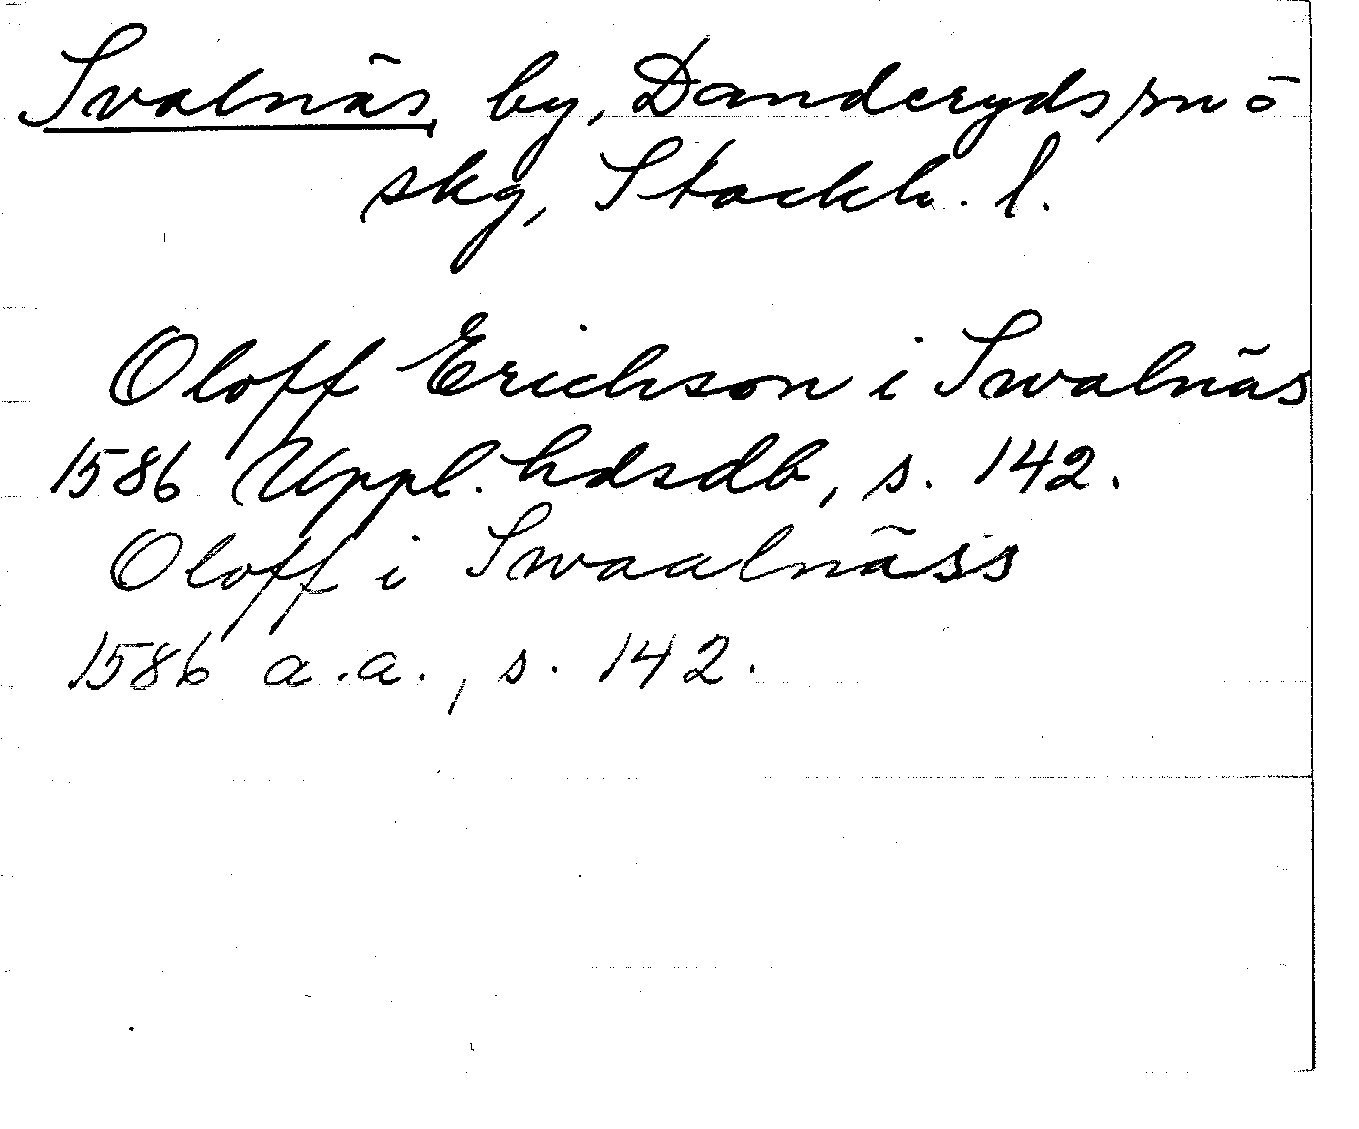 Svalnäs, by, Danderyds sn ö
skg, Stockh. l.
Oloff Erichson i Swalnäs
1586 Uppl. hdsdb, s. 142.
Oloff i Swaalnäss
1586 a.a., s. 142.